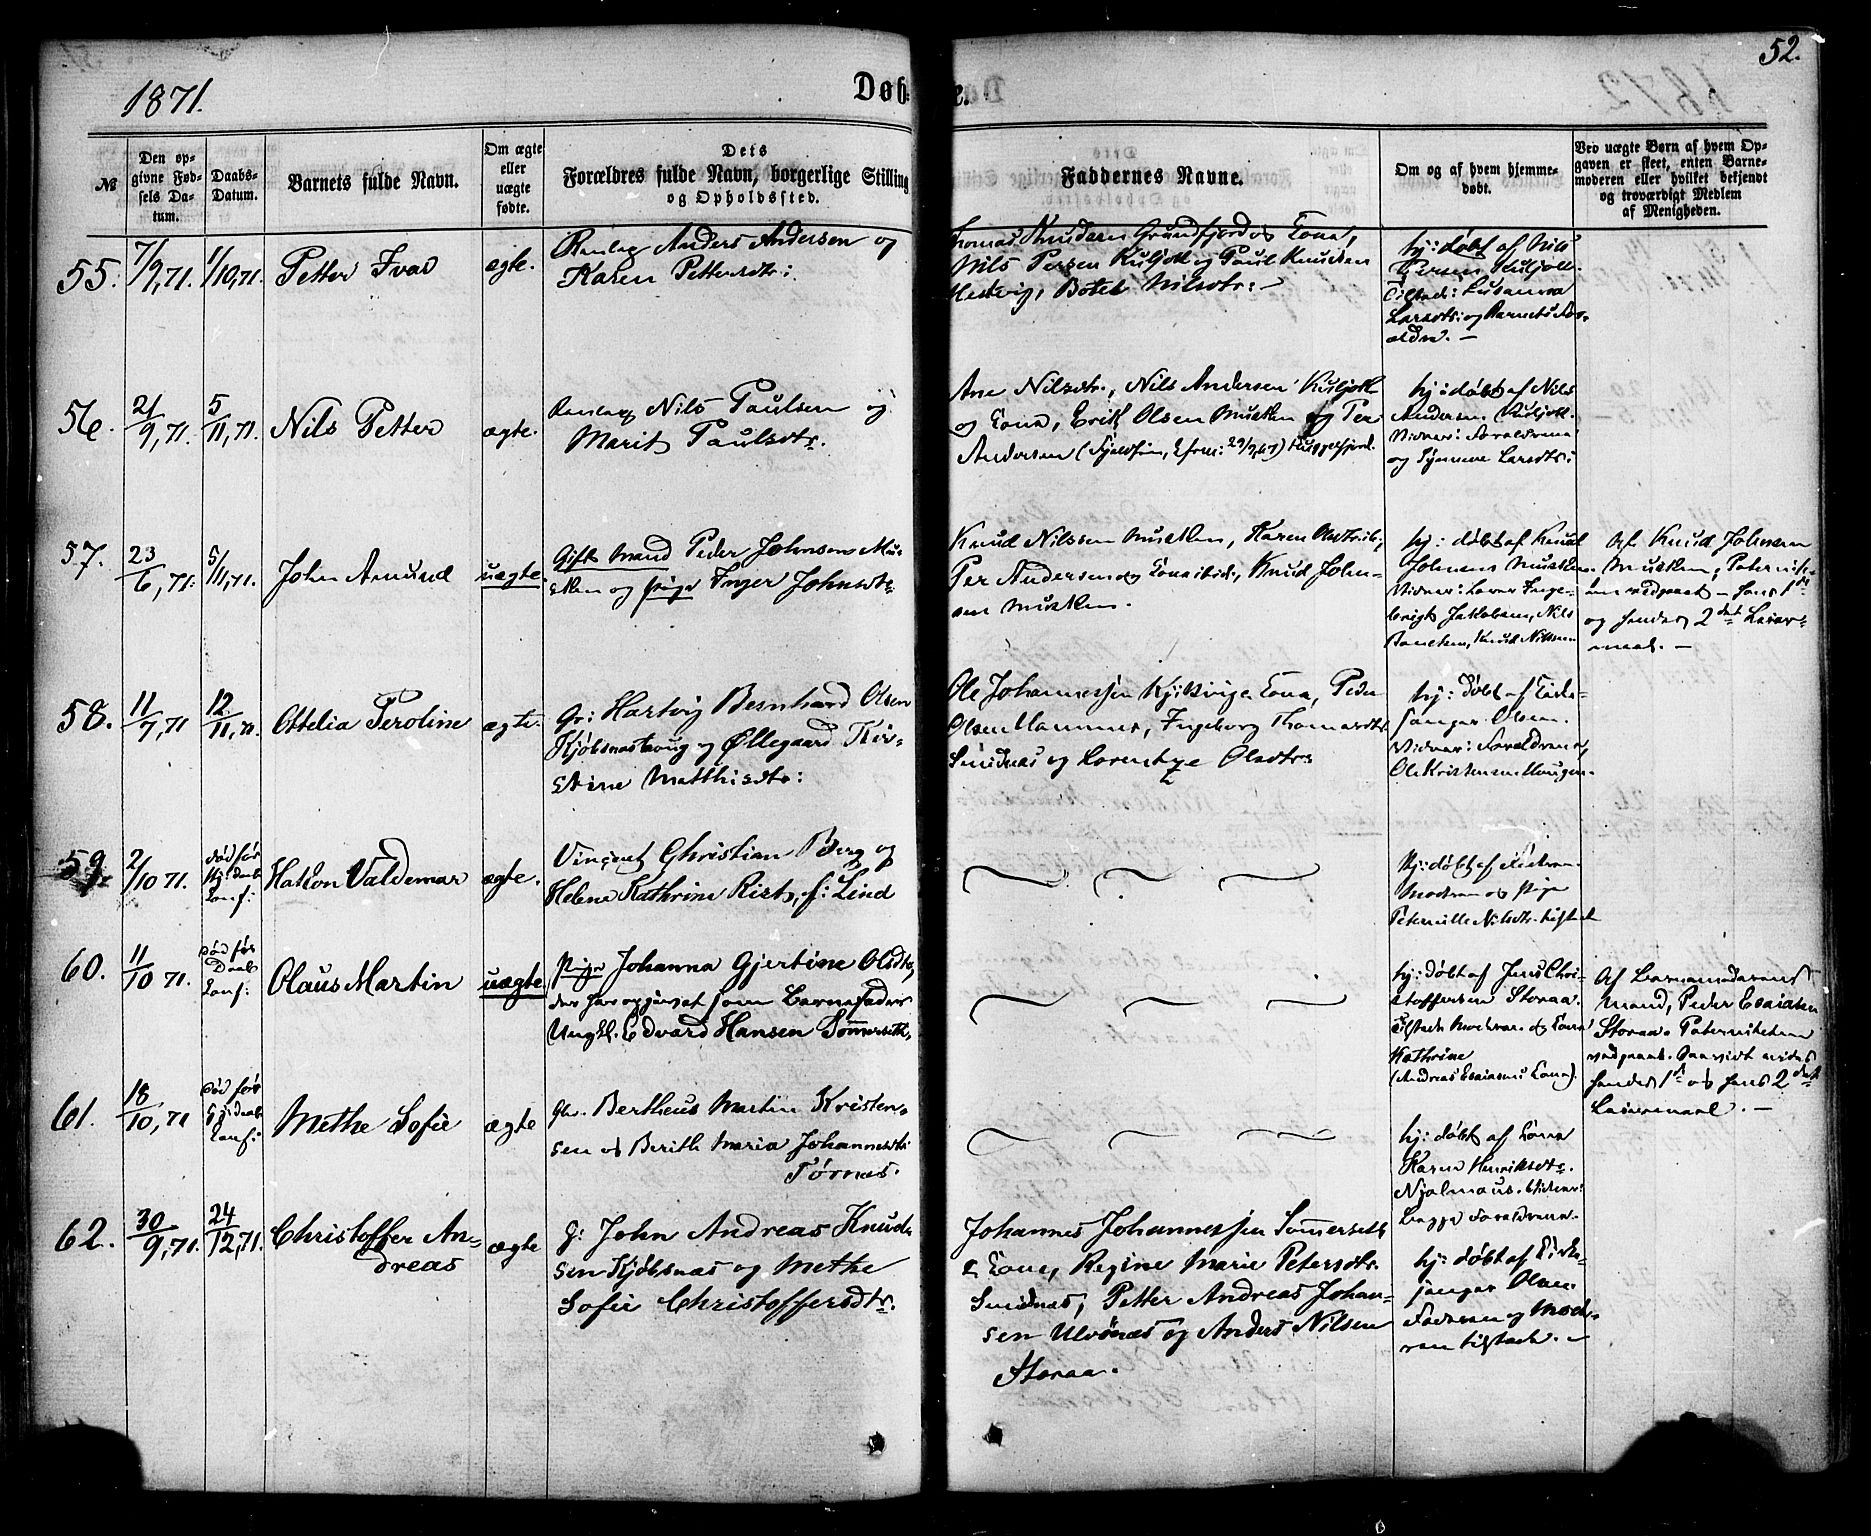 52.
1871.
Døbte.
№
Den opgivne Fødsels Datum.
Daabs-Datum.
Barnets fulde Navn.
Om ægte eller uægte fødte.
Dets Forældres fulde Navn, borgerlige Stilling og Opholdssted.
Faddernes Navne.
Om og af hvem hjemmedøbt.
Bro uægte Børn af hvem Opgaven er skeet, enten Barnemoderen eller hvilket bekjendt og troværdigt Medlem af Menigheden.
55. 7/9,71. 1/10,71. Petter Ivar ægte.
Anders Andersen og
Karen Pettersdtr:
Thomas Knudsen Grundfjord og Kona,
Nils Persen Kuljok og Paul Knudsen
Botel Nilsdtr: -
hj: døbt af Nils
Persen Kuljok.
Larsdtr: og Barnets For-
ældre. -
56. 21/9,71. 5/11,71. Nils Petter ægte.
Nils Paulsen og
Marit Paulsdtr.
Ane Nilsdtr., Nils Andersen Kuljok
og Kona, Erik Olsen Musken og Per
Andersen
hj: døbt af Nils
Andersen Kuljok.
Vidner: Forældrene
og Synneve Larsdtr:
57. 23/6,71. 5/11,71. John Amund uægte.
Gift Mand Peder Johnsen Mu-
sken og Pige Inger Johnsdtr
Knud Nilssen Musken, Karen
Per Andersen og Kona ibid., Knud John-
sen Musken.
hj: døbt af Knud
Johnsen Musken.
Vidner: Lærer Inge-
brigt Jakobsen, Nils
Knud Nilssen
Af Knud Johnsen
Musken; Paternite-
ten vedgaaet - hans 1ste
og hendes 2det Leier-
maal. -
58. 11/7,71 12/11,71 Ottelia Peroline ægte.
Gr: Hartvig Bernhard Olsen
Kjøbsnæshaug og Øllegaard Kir-
stine Matthisdtr:
Ole Johannessen Kjikvige Kona, Peder
Olsen Hammer, Ingeborg Thomasdtr
Smidnæs og Lorentze Olsdtr:
hj: døbt af Kirke-
sanger Olsen.
Vidner: Forældrene,
Ole Kristensen Haugen.
59. 2/10 71. død før
Hakon Valdemar ægte.
Vincent Christian Berg og
Helene Kathrine Rist, f: Lind
hj: døbt af Faderen
Moderen og Pige
Peternille Nilsdtr. tilstede
60. 11/10 71. død før
Daab
Olaus Martin uægte
Pige Johanna Gjertine Olsdtr,
der har opgivet som Barnefader
Ungkl. Edvard Hansen Sommerseth,
hj: døbt af Jens Chri-
stoffersen Storaa.
Tilstede Moderen og Kona
Kathrine
(Andreas Esaiasens Kona).
Af Barnemoderens
Mand, Peder Esaiasen
Storaa. Paterniteten
vedgaaet. Saavidt vides
hendes 1ste og hans 2det
Leiermaal. -
61. 18/10,71 død før
Methe Sofie ægte
Gr. Bertheus Martin Kristen-
sen og Berith Maria Johannesdtr
Tørnæs.
hj: døbt af Kona
Karen Henriksdtr.
Vidner:
Begge Forældrene.
62. 30/9,71. 24/12,71. Christoffer An-
dreas ægte
G: John Andreas Knud-
sen Kjøbsnæs og Methe
Sofie Christoffersdtr.
Johannes Johannessen Sommerseth
& Kone, Regine Marie Petersdtr.
Smidnæs, Petter Andreas Johan-
sen Ulvønæs og Anders Nilsen
Storaa.
hj: døbt af Kirke-
sanger Olsen
Faderen og Mode-
ren tilstede. -